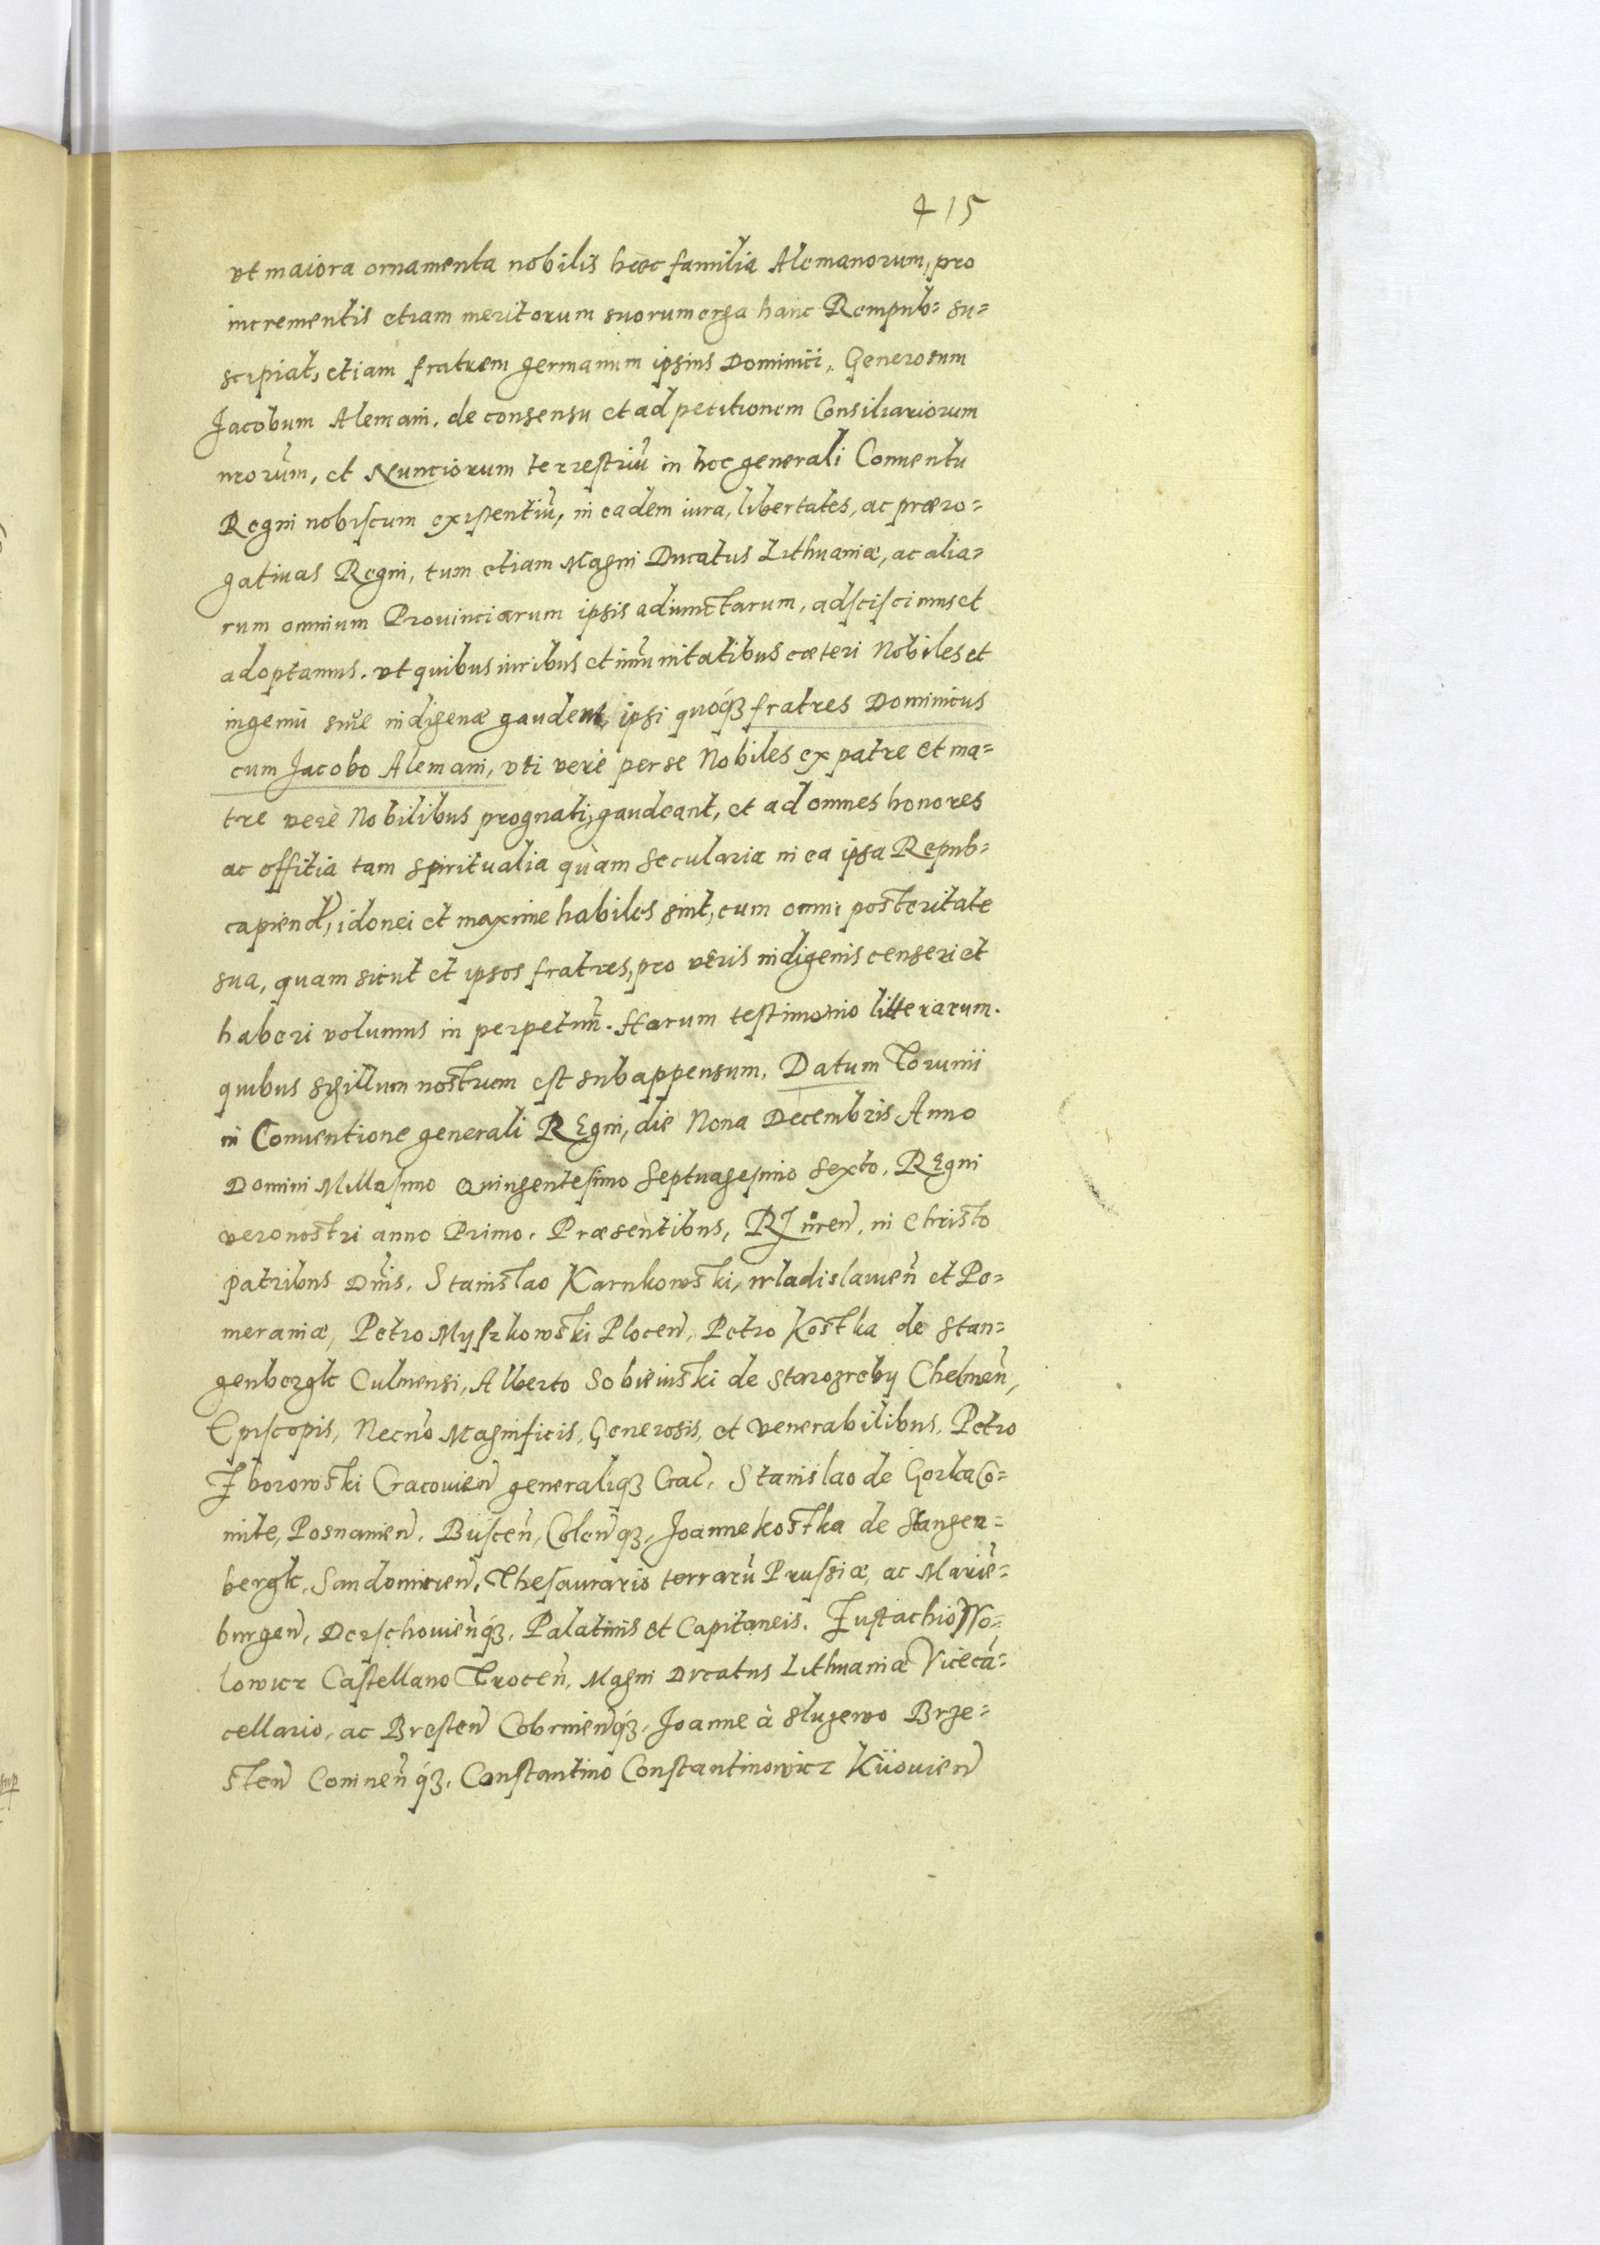 415
vt maiora ornamenta nobilis hæc familia Alemanorum, pro
incrementis etiam meritorum suorum erga hanc Rempub= su=
scipiat, etiam fratrem germanum ipsius Dominici, Generosum
Jacobum Alemani, de consensu et ad petitionem Consiliariorum
nrorum̃, et Nunciorum terrestriũ in hoc generali Conuentu
Regni nobiscum existentiũ, in eadem iura, libertates, ac præro=
gatiuas Regni, tum etiam Magni Ducatus Lithuaniæ, ac alia=
rum omnium Prouinciarum ipsis adiunctarum, adsciscimus et
adoptamus. vt quibus iuribus et im̃unitatibus cæteri Nobiles et
ingenui siue indigenæ gaudent, ipsi quóqꝫ fratres Dominicus
cum Jacobo Alemani, vti verè per se Nobiles ex patre et ma=
tre verè Nobilibus prognati, gaudeant, et ad omnes honores
ac offitia tam spiritualia quàm secularia in ea ipsa Repub=
capiend̃, idonei et maxime habiles sint, cum omni posteritate
sua, quam sicut et ipsos fratres, pro veris indigenis censeri et
haberi volumus in perpetuũ. Harum testimonio litterarum.
quibus sigillum nostrum est subappensum. Datum Torunii
in Conuentione generali REgni, die Nona Decembris Anno
Domini Millesimo Quingentesimo Septuagesimo Sexto, REgni
vero nostri anno Primo. Præsentibus, RJ in ren̄. in Christo
patribus Dñis, Stanislao Karnkowski, wladislauien̄ et Po=
meraniæ, Petro Myszkowski Plocen̄, Petro Kostka de Stan=
genbergk Culmensi, Alberto Sobieiuski de Starozreby Chelmen̄,
Episcopis, Necnõ Magnificis, Generosis, et Venerabilibus, Petro
Zborowski Cracouien̄ generaliqꝫ Crac̄. Stanislao de Gorka Co=
mite, Posnanien̄. Buscen̄, Colen̄qꝫ, Joanne kostka de Stangen=
bergk, Sandomirien̄, Thesaurario terrarũ Prussiæ, ac Mariẽ=
burgen̄, Derschouien̄qꝫ, Palatinis et Capitaneis. Eustachio Wo=
lowicz Castellano Trocen̄, Magni Ducatus Lithuaniæ Vicecã=
cellario, ac Bresten̄ Cobrinen̄qꝫ, Joanne à Sluzewo Brze=
sten̄ Coninen̄qꝫ, Constantino Constantinowicz Kiiouien̄